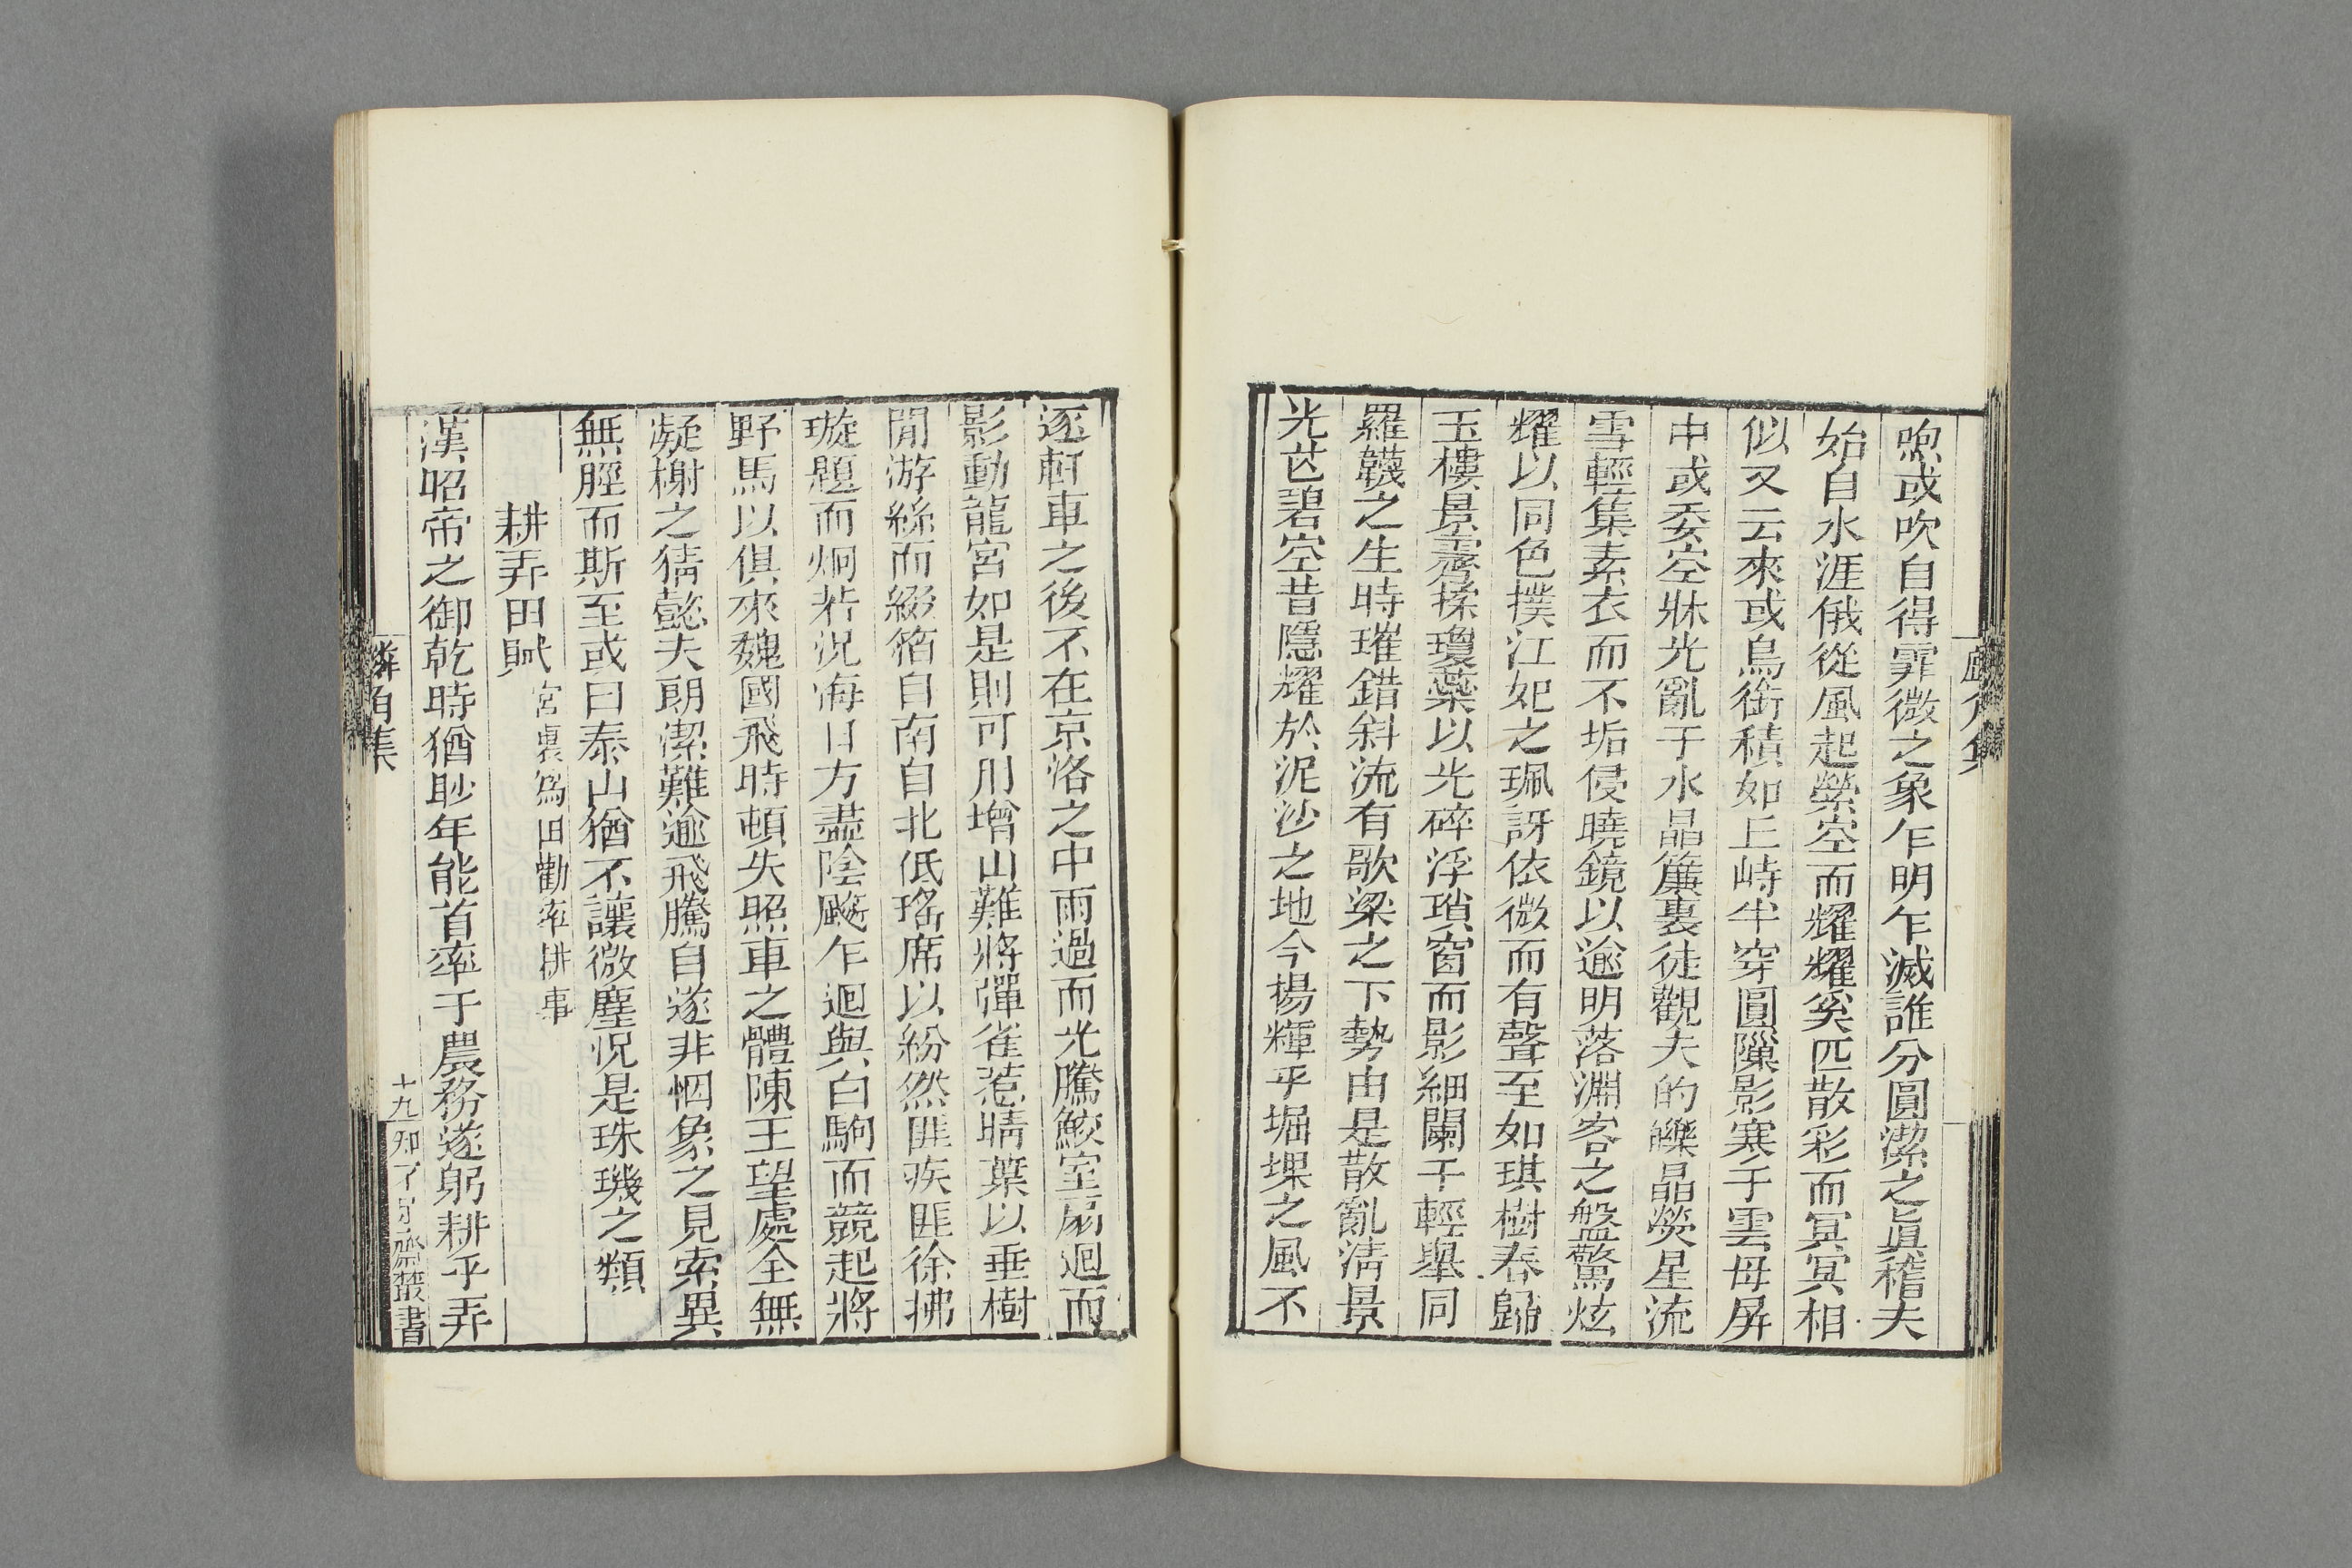 喣或吹自得霏微之象乍明乍滅誰分圓潔之眞稽夫
始自水涯俄從風起縈空而耀耀奚匹散彩而冥冥相
似又云來或鳥銜積如丘峙半穿圓隟影寒于雲母屏
中或委空牀光亂于水晶簾裏徒觀夫的皪晶熒星流
雪輕集素衣而不垢侵曉鏡以逾明落淵客之盤驚炫
耀以同色撲江妃之珮訝依微而有聲至如琪樹春歸
玉樓景霽揉瓊蘂以光碎浮瑣窗而影細闌干輕舉同
羅韈之生時璀錯斜流有歌梁之下勢由是散亂淸景
光芒碧空昔隱耀於泥沙之地今揚輝乎堀堁之風不
逐軒車之後不在京洛之中雨過而光騰鮫室扇迴而
影動龍宮如是則可用增山難將彈雀惹晴葉以垂樹
閒游絲而綴箔自南自北低瑤席以紛然匪疾匪徐拂
璇題而炯若況海日方盡陰飈乍迴與白駒而競起將
野馬以俱來魏國飛時頓失照車之體陳王望處全無
凝榭之猜懿夫朗潔難逾飛騰自遂非罔象之見索異
無脛而斯至或曰泰山猶不讓微塵況是珠璣之類
耕弄田賦 宮裏爲田勸率耕事
漢昭帝之御乾時猶眇年能首率于農務遂躬耕乎弄
麟角集
十九 知不足齋叢書